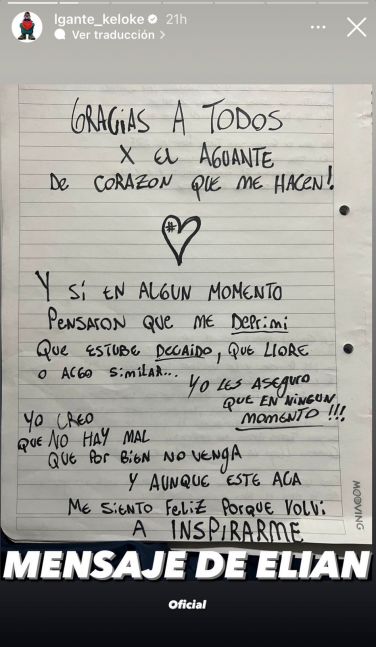 lgante_keloke 21h
Ver traducción >
GRACIAS A TODOS
X EL AGUANTE
DE CORAZON QUE ME HACEN!
#
Y SI EN ALGUN MOMENTO
PENSARON QUE ME DEPRIMI
QUE ESTUBE DECAIDO, QUE LLORE
O ALGO SIMILAR...
YO LES ASEGURO
QUE EN NINGUN
MOMENTO !!!
YO CREO
QUE NO HAY MAL
QUE POR BIEN NO VENGA
Y AUNQUE ESTE ACA
ME SIENTO FELIZ PORQUE VOLVI
A INSPIRARME
MOOVING
MENSAJE DE ELIAN
Oficial